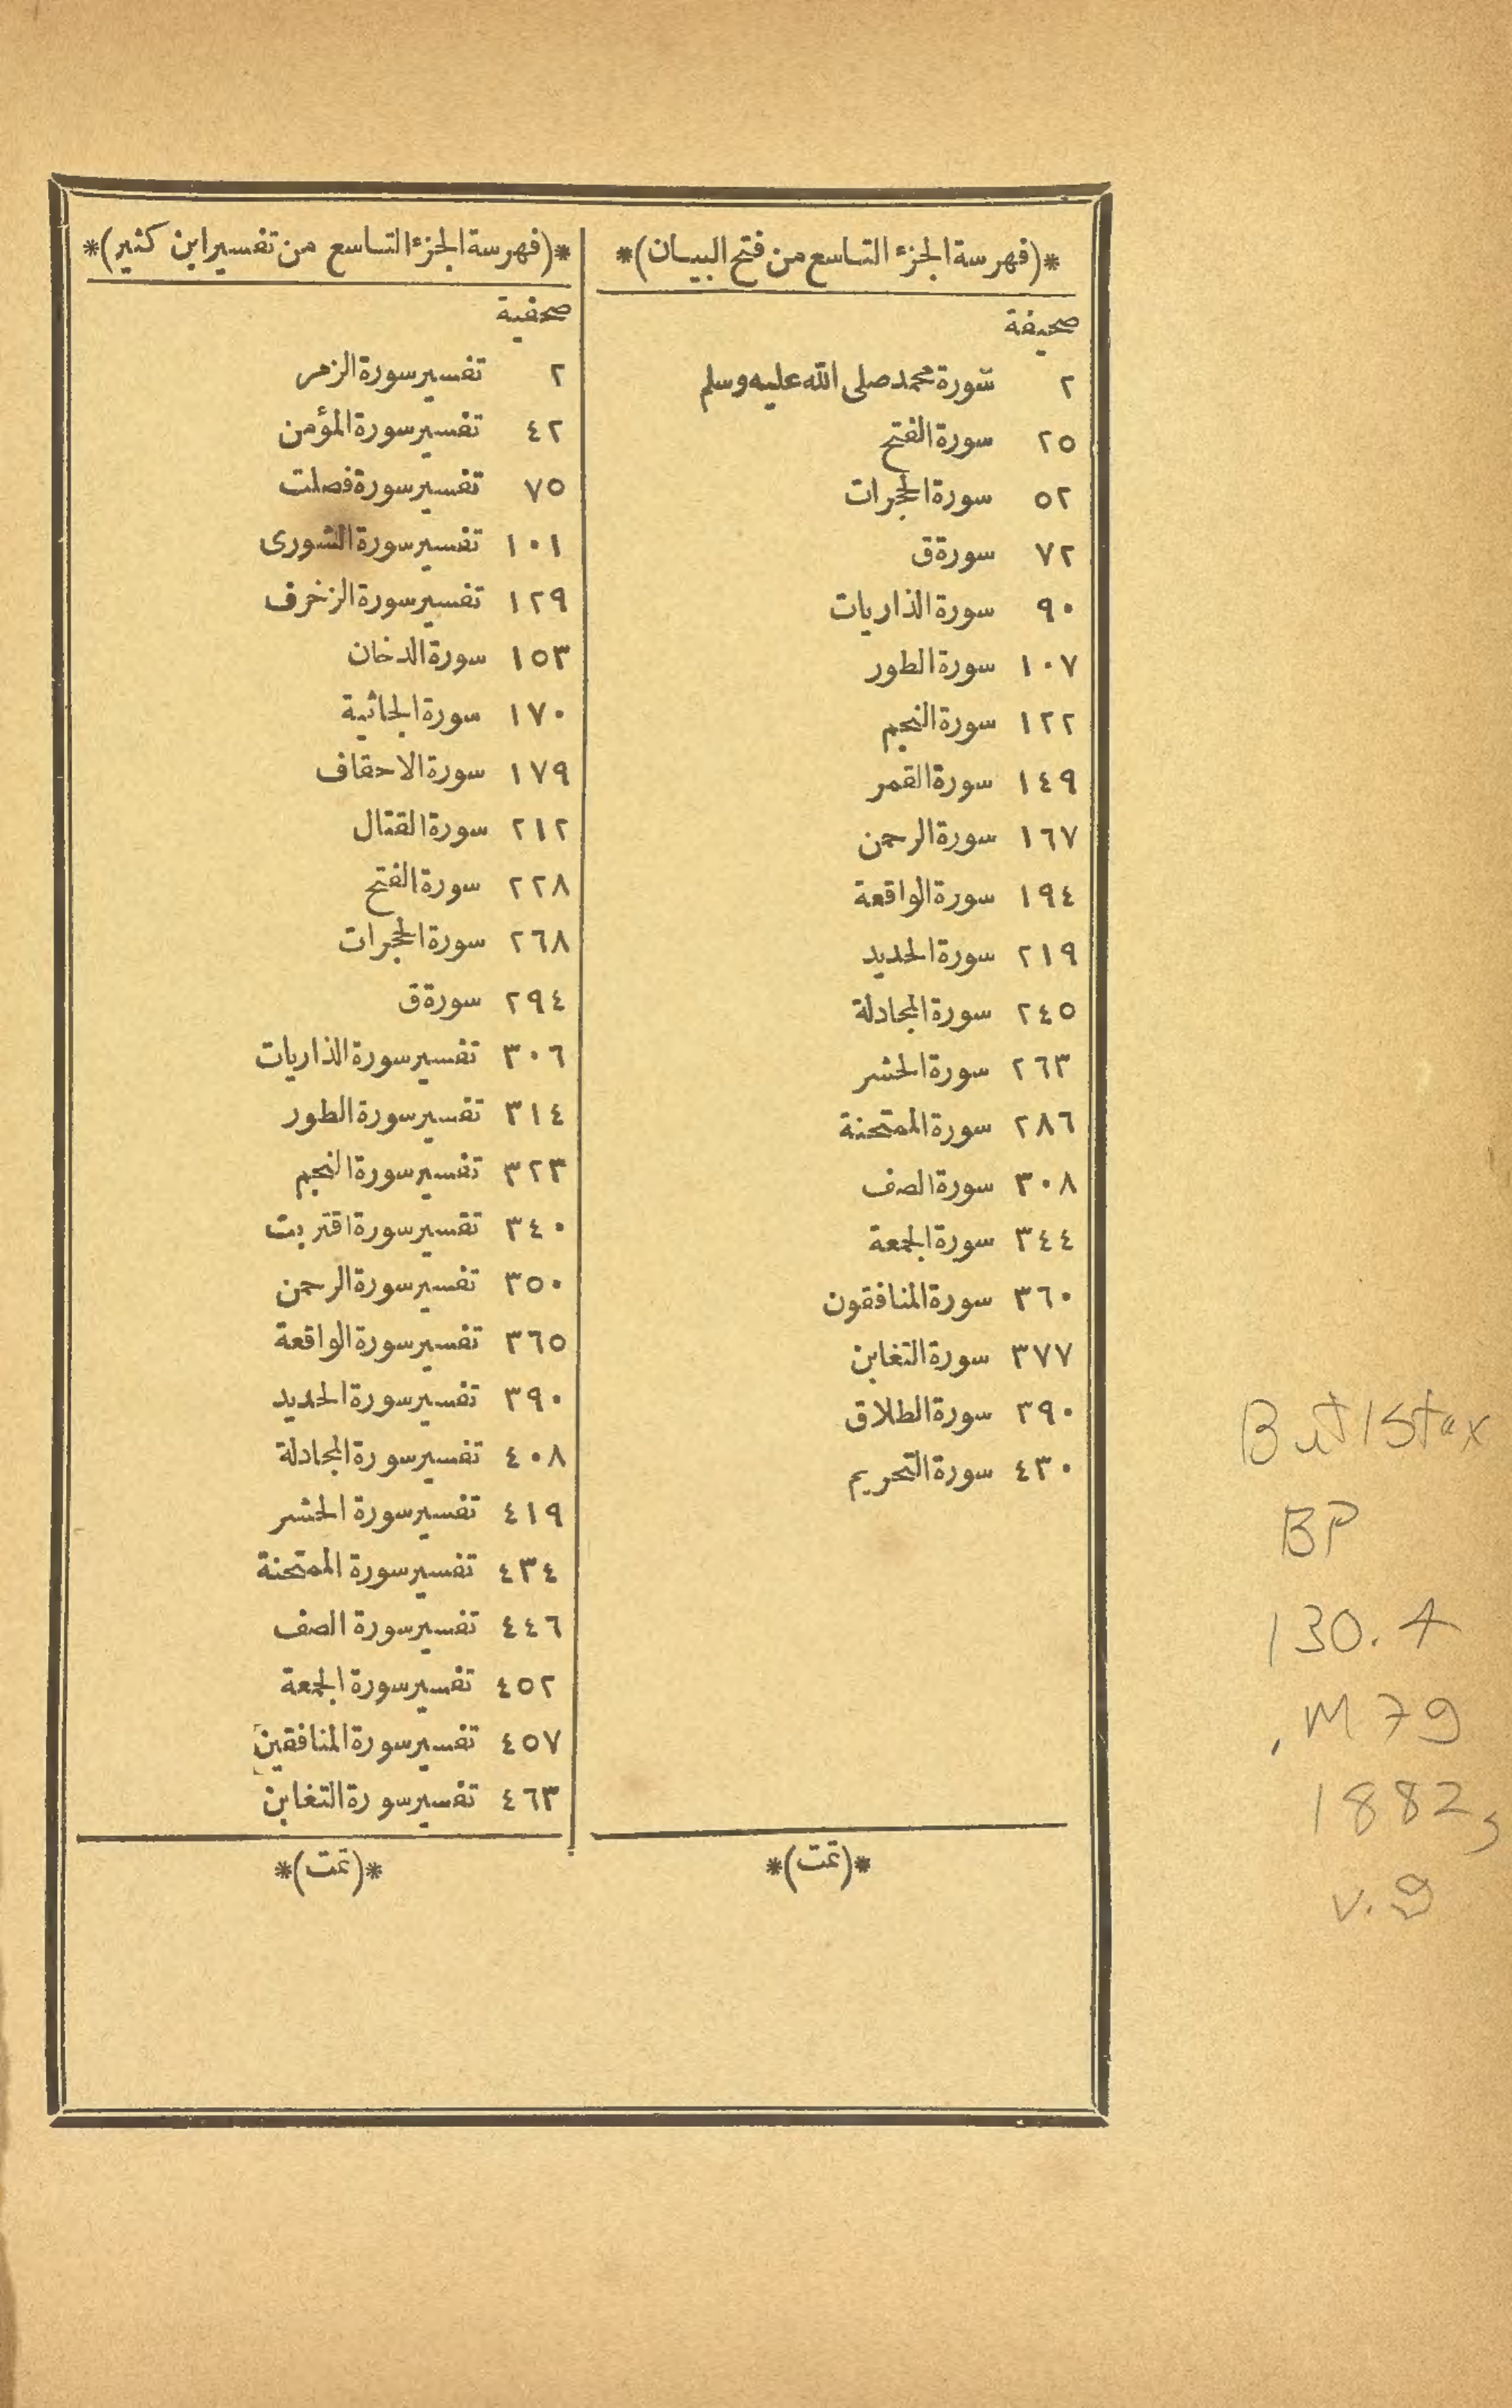 *(فهرسة الجزء التاسع من فتح البيان)*
صحيفة
٢ سورة محمد صلى الله عليه وسلم
٢٥ سورة الفتح
٥٢ سورة الحجرات
٧٢ سورة ق
٩٠ سورة الذاريات
١٠٧ سورة الطور
١٢٢ سورة النجم
١٤٩ سورة القمر
١٦٧ سورة الرحمن
١٩٤ سورة الواقعة
٢١٩ سورة الحديد
٢٤٥ سورة المجادلة
٢٦٣ سورة الحشر
٢٨٦ سورة الممتحنة
٣٠٨ سورة الصف
٣٤٤ سورة الجمعة
٣٦٠ سورة المنافقون
٣٧٧ سورة التغابن
٣٩٠ سورة الطلاق
٤٣٠ سورة التحريم
*(تمت)*
*(فهرسة الجزء التاسع من تفسير ابن كثير)*
صحفية
٢ تفسير سورة الزمر
٤٢ تفسير سورة المؤمن
٧٥ تفسير سورة فصلت
١٠١ تفسير سورة الشورى
١٢٩ تفسير سورة الزخرف
١٥٣ سورة الدخان
١٧٠ سورة الجاثية
١٧٩ سورة الاحقاف
٢١٢ سورة القتال
٢٢٨ سورة الفتح
٢٦٨ سورة الحجرات
٢٩٤ سورة ق
٣٠٦ تفسير سورة الذاريات
٣١٤ تفسير سورة الطور
٣٢٣ تفسير سورة النجم
٣٤٠ تفسير سورة اقتربت
٣٥٠ تفسير سورة الرحمن
٣٦٥ تفسير سورة الواقعة
٣٩٠ تفسير سورة الحديد
٤٠٨ تفسير سورة المجادلة
٤١٩ تفسير سورة الحشر
٤٣٤ تفسير سورة الممتحنة
٤٤٦ تفسير سورة الصف
٤٥٢ تفسير سورة الجمعة
٤٥٧ تفسير سورة المنافقين
٤٦٣ تفسير سورة التغابن
*(تمت)*
ButlStax
BP
130.4
.M79
1882g
v.9